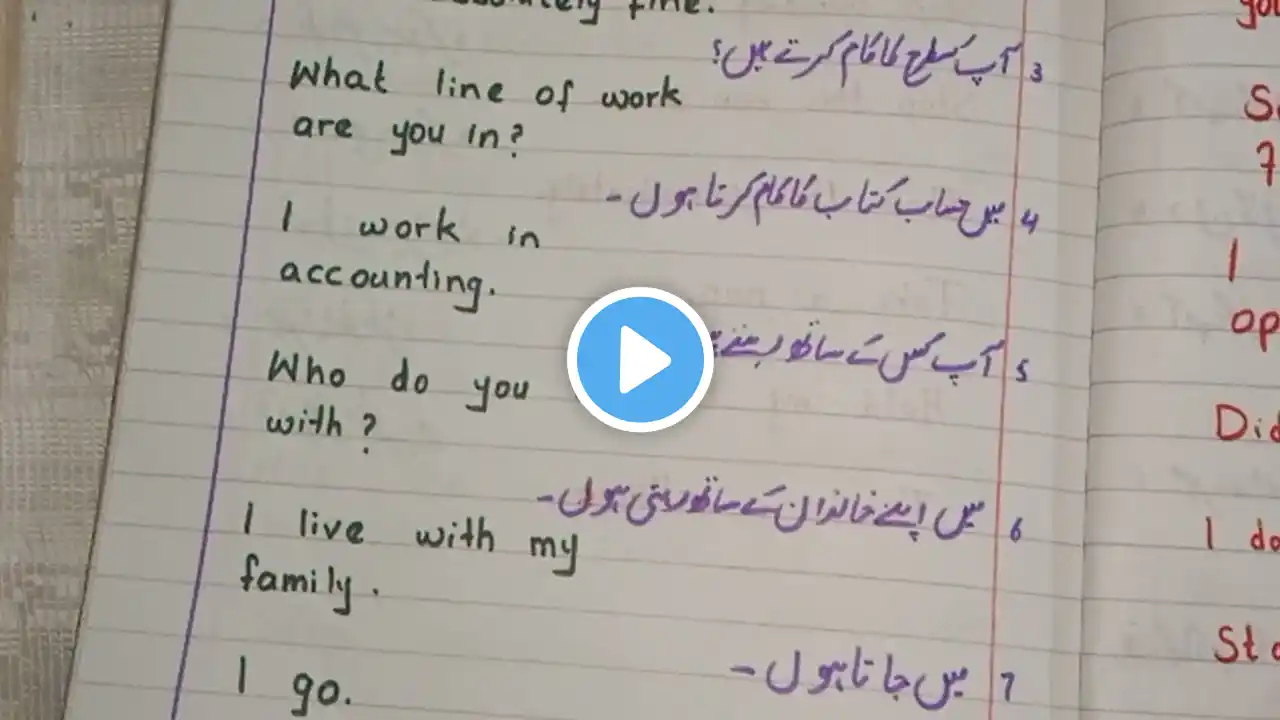 fine.
3 آپ کس طرح کا کام کرتے ہیں؟
What line of work
are you in?
4 میں حساب کتاب کا کام کرتا ہوں۔
I work in
accounting.
5 آپ کس کے ساتھ رہتے
Who do you
with?
6 میں اپنے خاندان کے ساتھ رہتی ہوں۔
I live with my
family.
7 میں جاتا ہوں۔
I go.
I
op
Did
I do